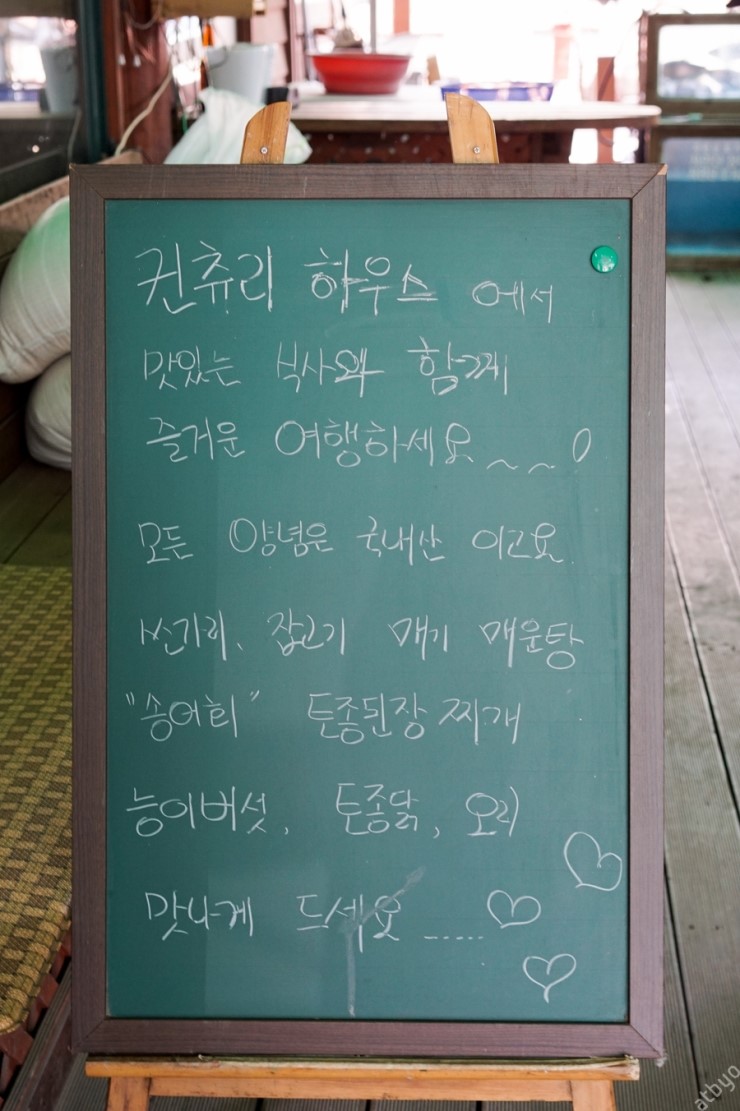 컨츄리 하우스 에서
맛있는 식사와 함께
즐거운 여행하세요~~!
모든 양념은 국내산 이고요
쏘가리, 잡고기 매기 매운탕
"송어회" 토종된장 찌개
능이버섯, 토종닭, 오리
맛나게 드세요.....
atbyo